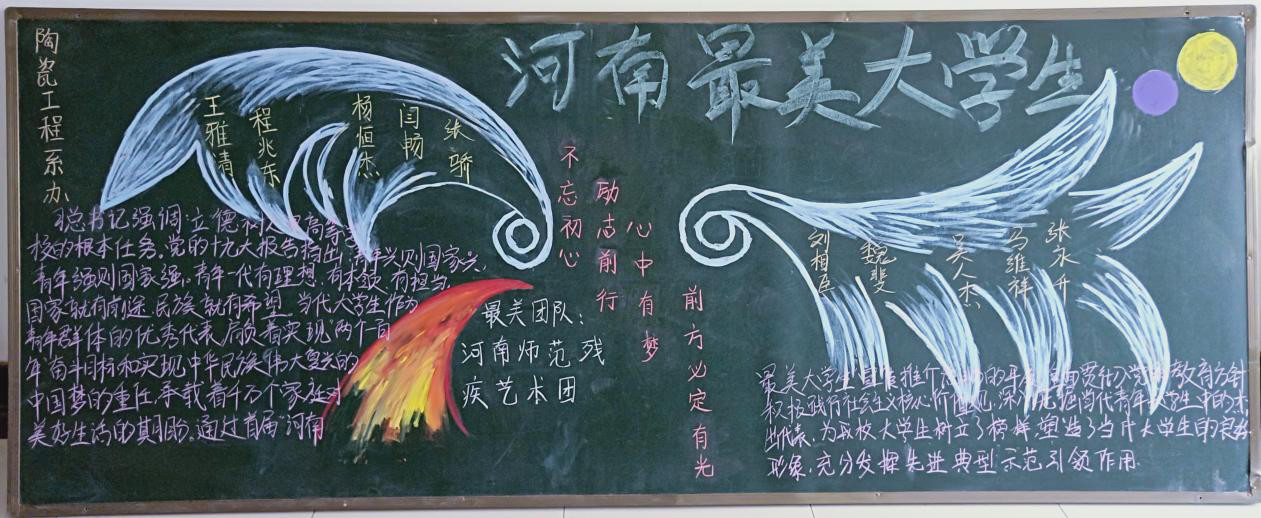 陶瓷工程系办
河南最美大学生
王雅清
程兆东
杨恒杰
闫畅
张骄
总书记强调:立德树人是高等学
校的根本任务。党的十九大报告指出:青年兴则国家兴,
青年强则国家强。青年一代有理想、有本领、有担当,
国家就有前途,民族就有希望。当代大学生作为
青年群体的优秀代表,肩负着实现"两个百
年"奋斗目标和实现中华民族伟大复兴的
中国梦的重任,承载着千万个家庭对
美好生活的期盼。通过首届"河南
最美团队:
河南师范残
疾艺术团
不忘初心
励志前行
心中有梦
前方必定有光
刘相臣
魏斐
吴人杰
马维祥
张永升
最美大学生"宣传推介
积极践行社会主义核心价值观,
出代表,为我校大学生树立了榜样,塑造了当代大学生的良好
形象,充分发挥先进典型示范引领作用.